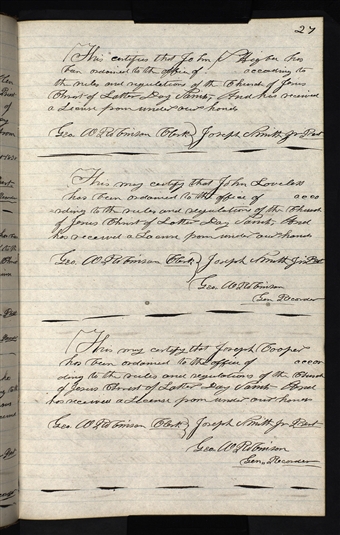 27
This certifies that John S Higbee has
been ordained to the office of according to
the rules and regulations of the Church of Jesus
Christ of Latter Day Saints, And has received
a License from under our hands
Geo W Robinson Clerk } Joseph Smith Jr Prest
This may certify that John Loveless
has been ordained to the office of acco
rding to the rules and regulations of the Church
of Jesus Christ of Latter Day Saints And
has received a License from under our hands
Geo. W Robinson Clerk } Joseph Smith Jr Prest
Geo W Robinson
Gen. Recorder
This may certify that Joseph Cooper
has been ordained to the office of accor
ding to the rules and regulations of the Church
of Jesus Christ of Latter Day Saints And
has received a License from under our hands
Geo W Robinson Clerk } Joseph Smith Jr Prest
Geo W Robinson
Gen. Recorder